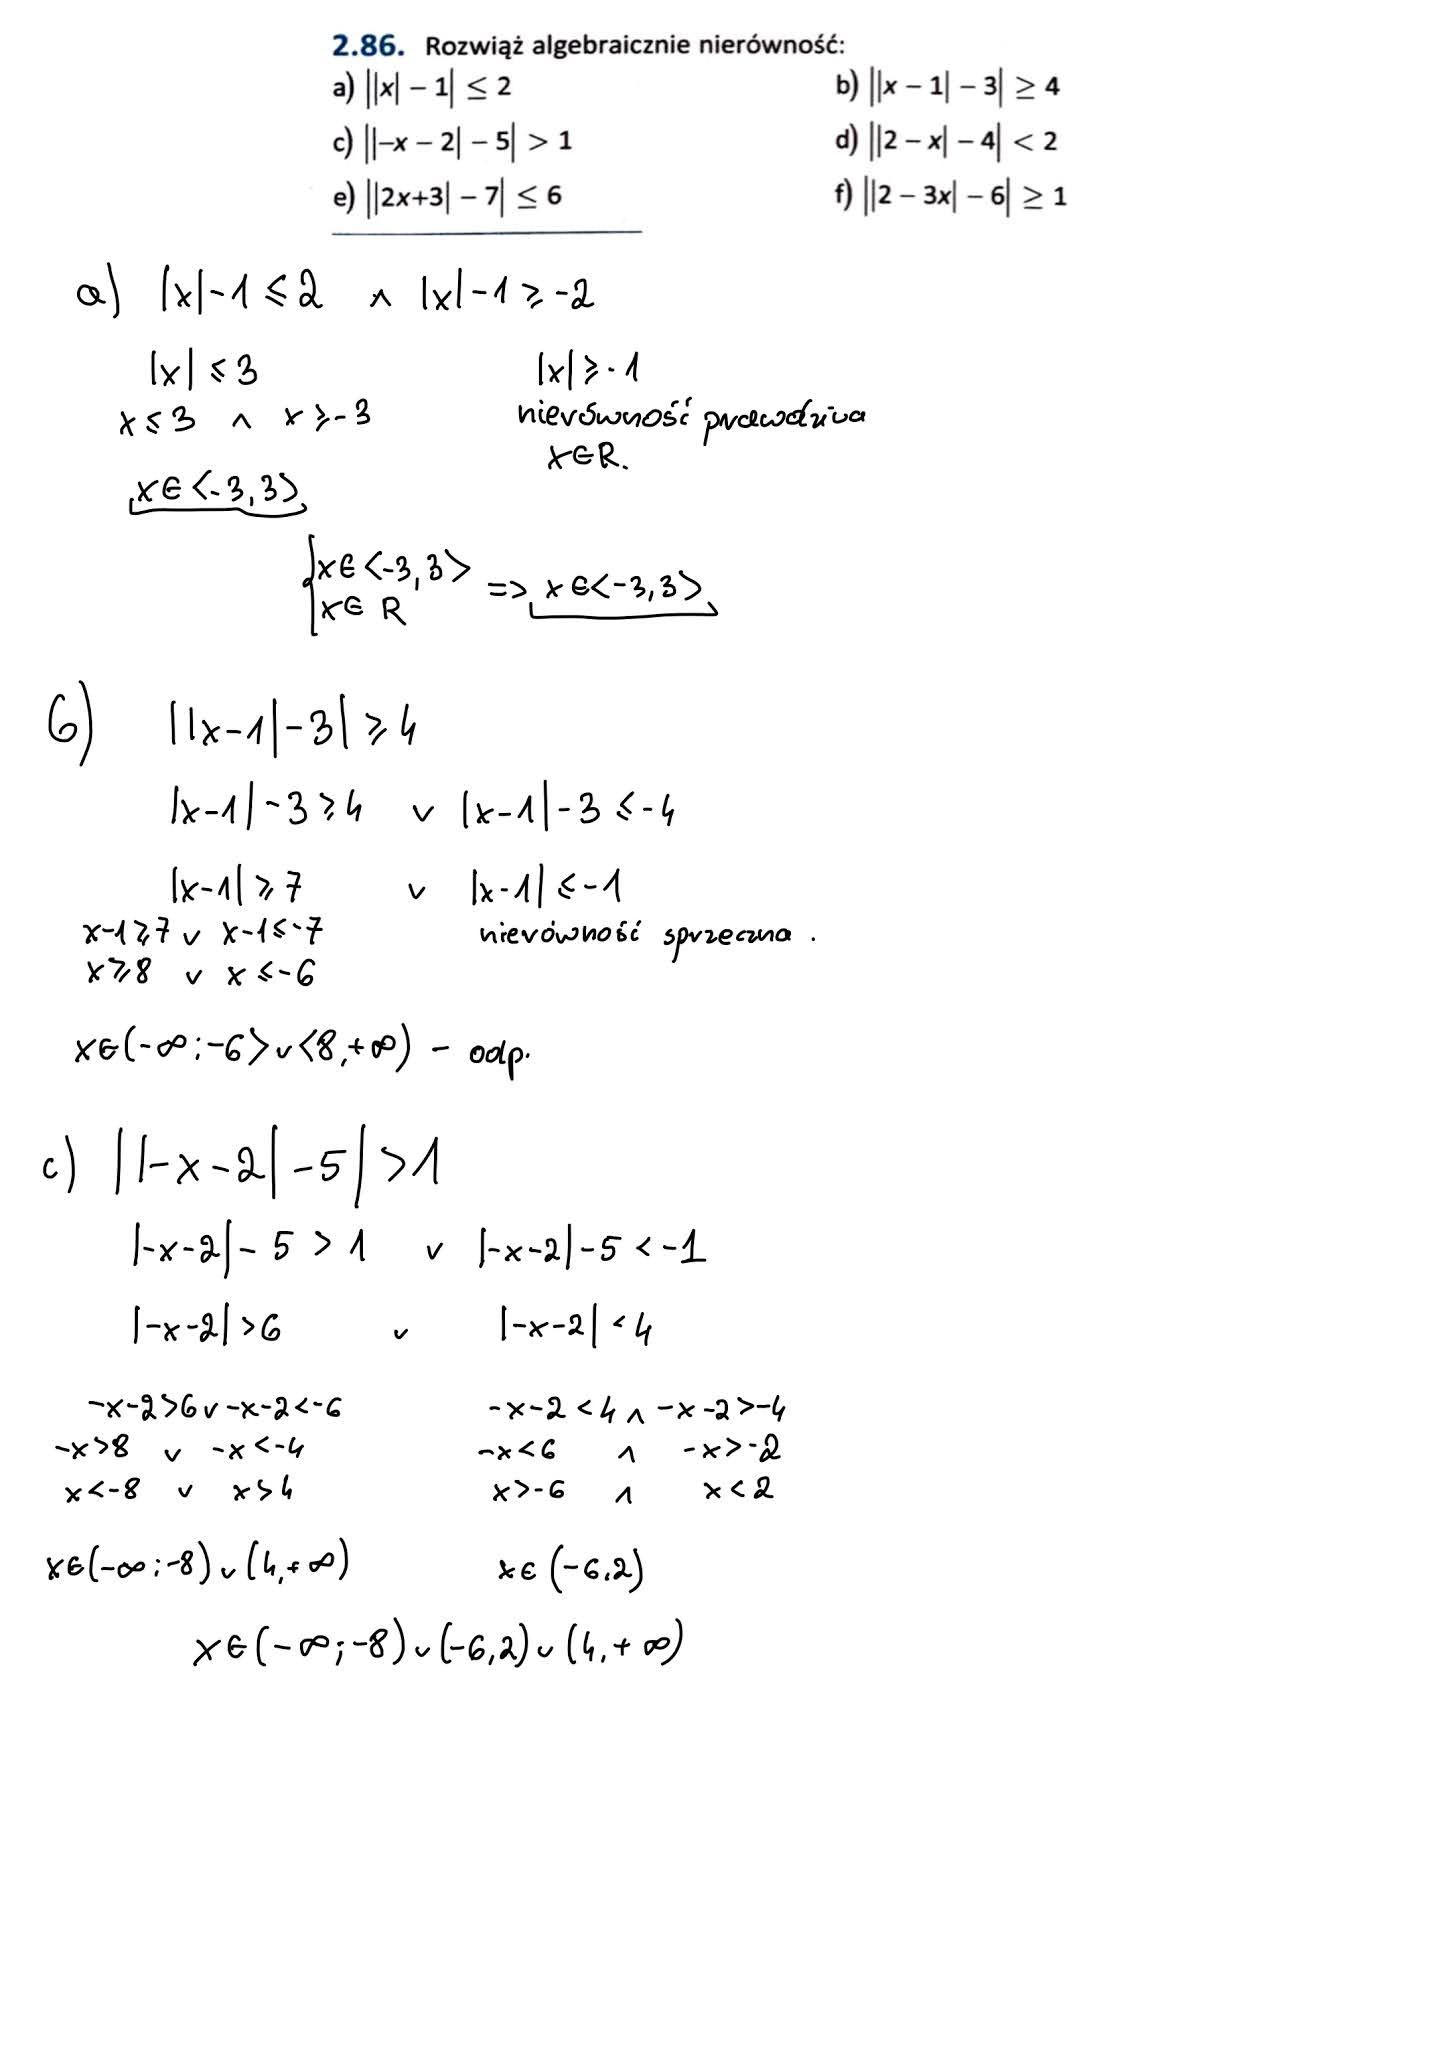 2.86. Rozwiąż algebraicznie nierówność:
a) ||x| – 1| ≤ 2 b) ||x – 1| – 3| ≥ 4
c) ||–x – 2| – 5| > 1 d) ||2 – x| – 4| < 2
e) ||2x+3| – 7| ≤ 6 f) ||2 – 3x| – 6| ≥ 1
a) |x|-1 ≤ 2 ∧ |x|-1 ≥ -2
|x| ≤ 3 |x| ≥ -1
x ≤ 3 ∧ x ≥ -3 nierówność prawdziwa
x∈R.
x∈<-3,3>
{x∈<-3,3> => x∈<-3,3>
x∈ R
b) ||x-1|-3| ≥ 4
|x-1|-3 ≥ 4 ∨ |x-1|-3 ≤ -4
|x-1| ≥ 7 ∨ |x-1| ≤ -1
x-1≥7 ∨ x-1≤-7 nierówność sprzeczna.
x≥8 ∨ x≤-6
x∈(-∞;-6>∪<8,+∞) - odp.
c) ||-x-2|-5| > 1
|-x-2|-5 > 1 ∨ |-x-2|-5 < -1
|-x-2| > 6 ∨ |-x-2| < 4
-x-2>6 ∨ -x-2<-6 -x-2<4 ∧ -x-2>-4
-x>8 ∨ -x<-4 -x<6 ∧ -x>-2
x<-8 ∨ x>4 x>-6 ∧ x<2
x∈(-∞;-8)∪(4,+∞) x∈(-6,2)
x∈(-∞;-8)∪(-6,2)∪(4,+∞)